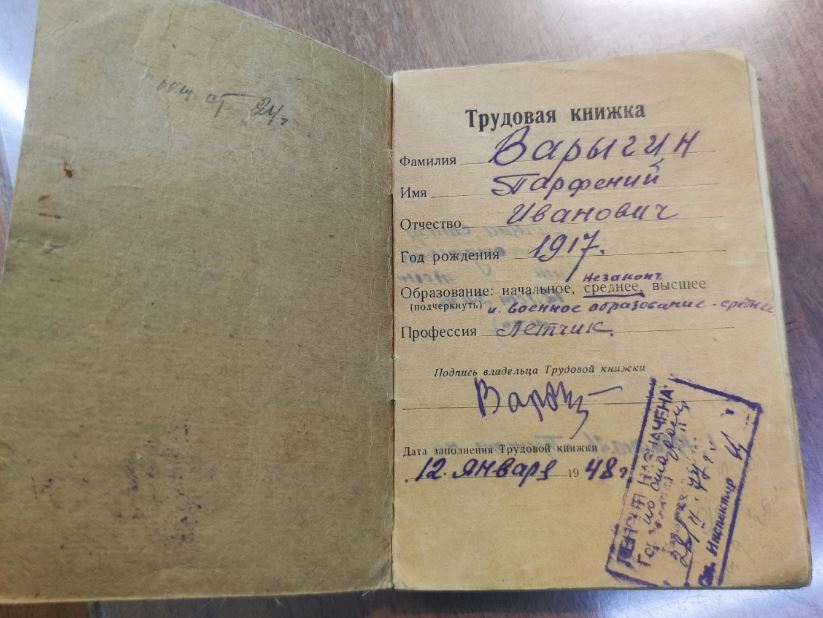 общ. ст 24 г
Трудовая книжка
Фамилия Варыгин
Имя Парфений
Отчество Иванович
Год рождения 1917.
незаконч
Образование: начальное, среднее, высшее
(подчеркнуть) и военное образование - средн
Профессия Летчик.
Подпись владельца Трудовой книжки
Дата заполнения Трудовой книжки
12. января 1948 г
ПЕНСИЯ НАЗНАЧЕНА:
по
Инспектор